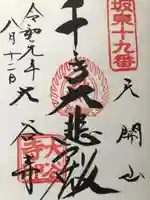 坂東十九番
天開山
千手大悲殿
大谷寺
令和元年
八月十二日